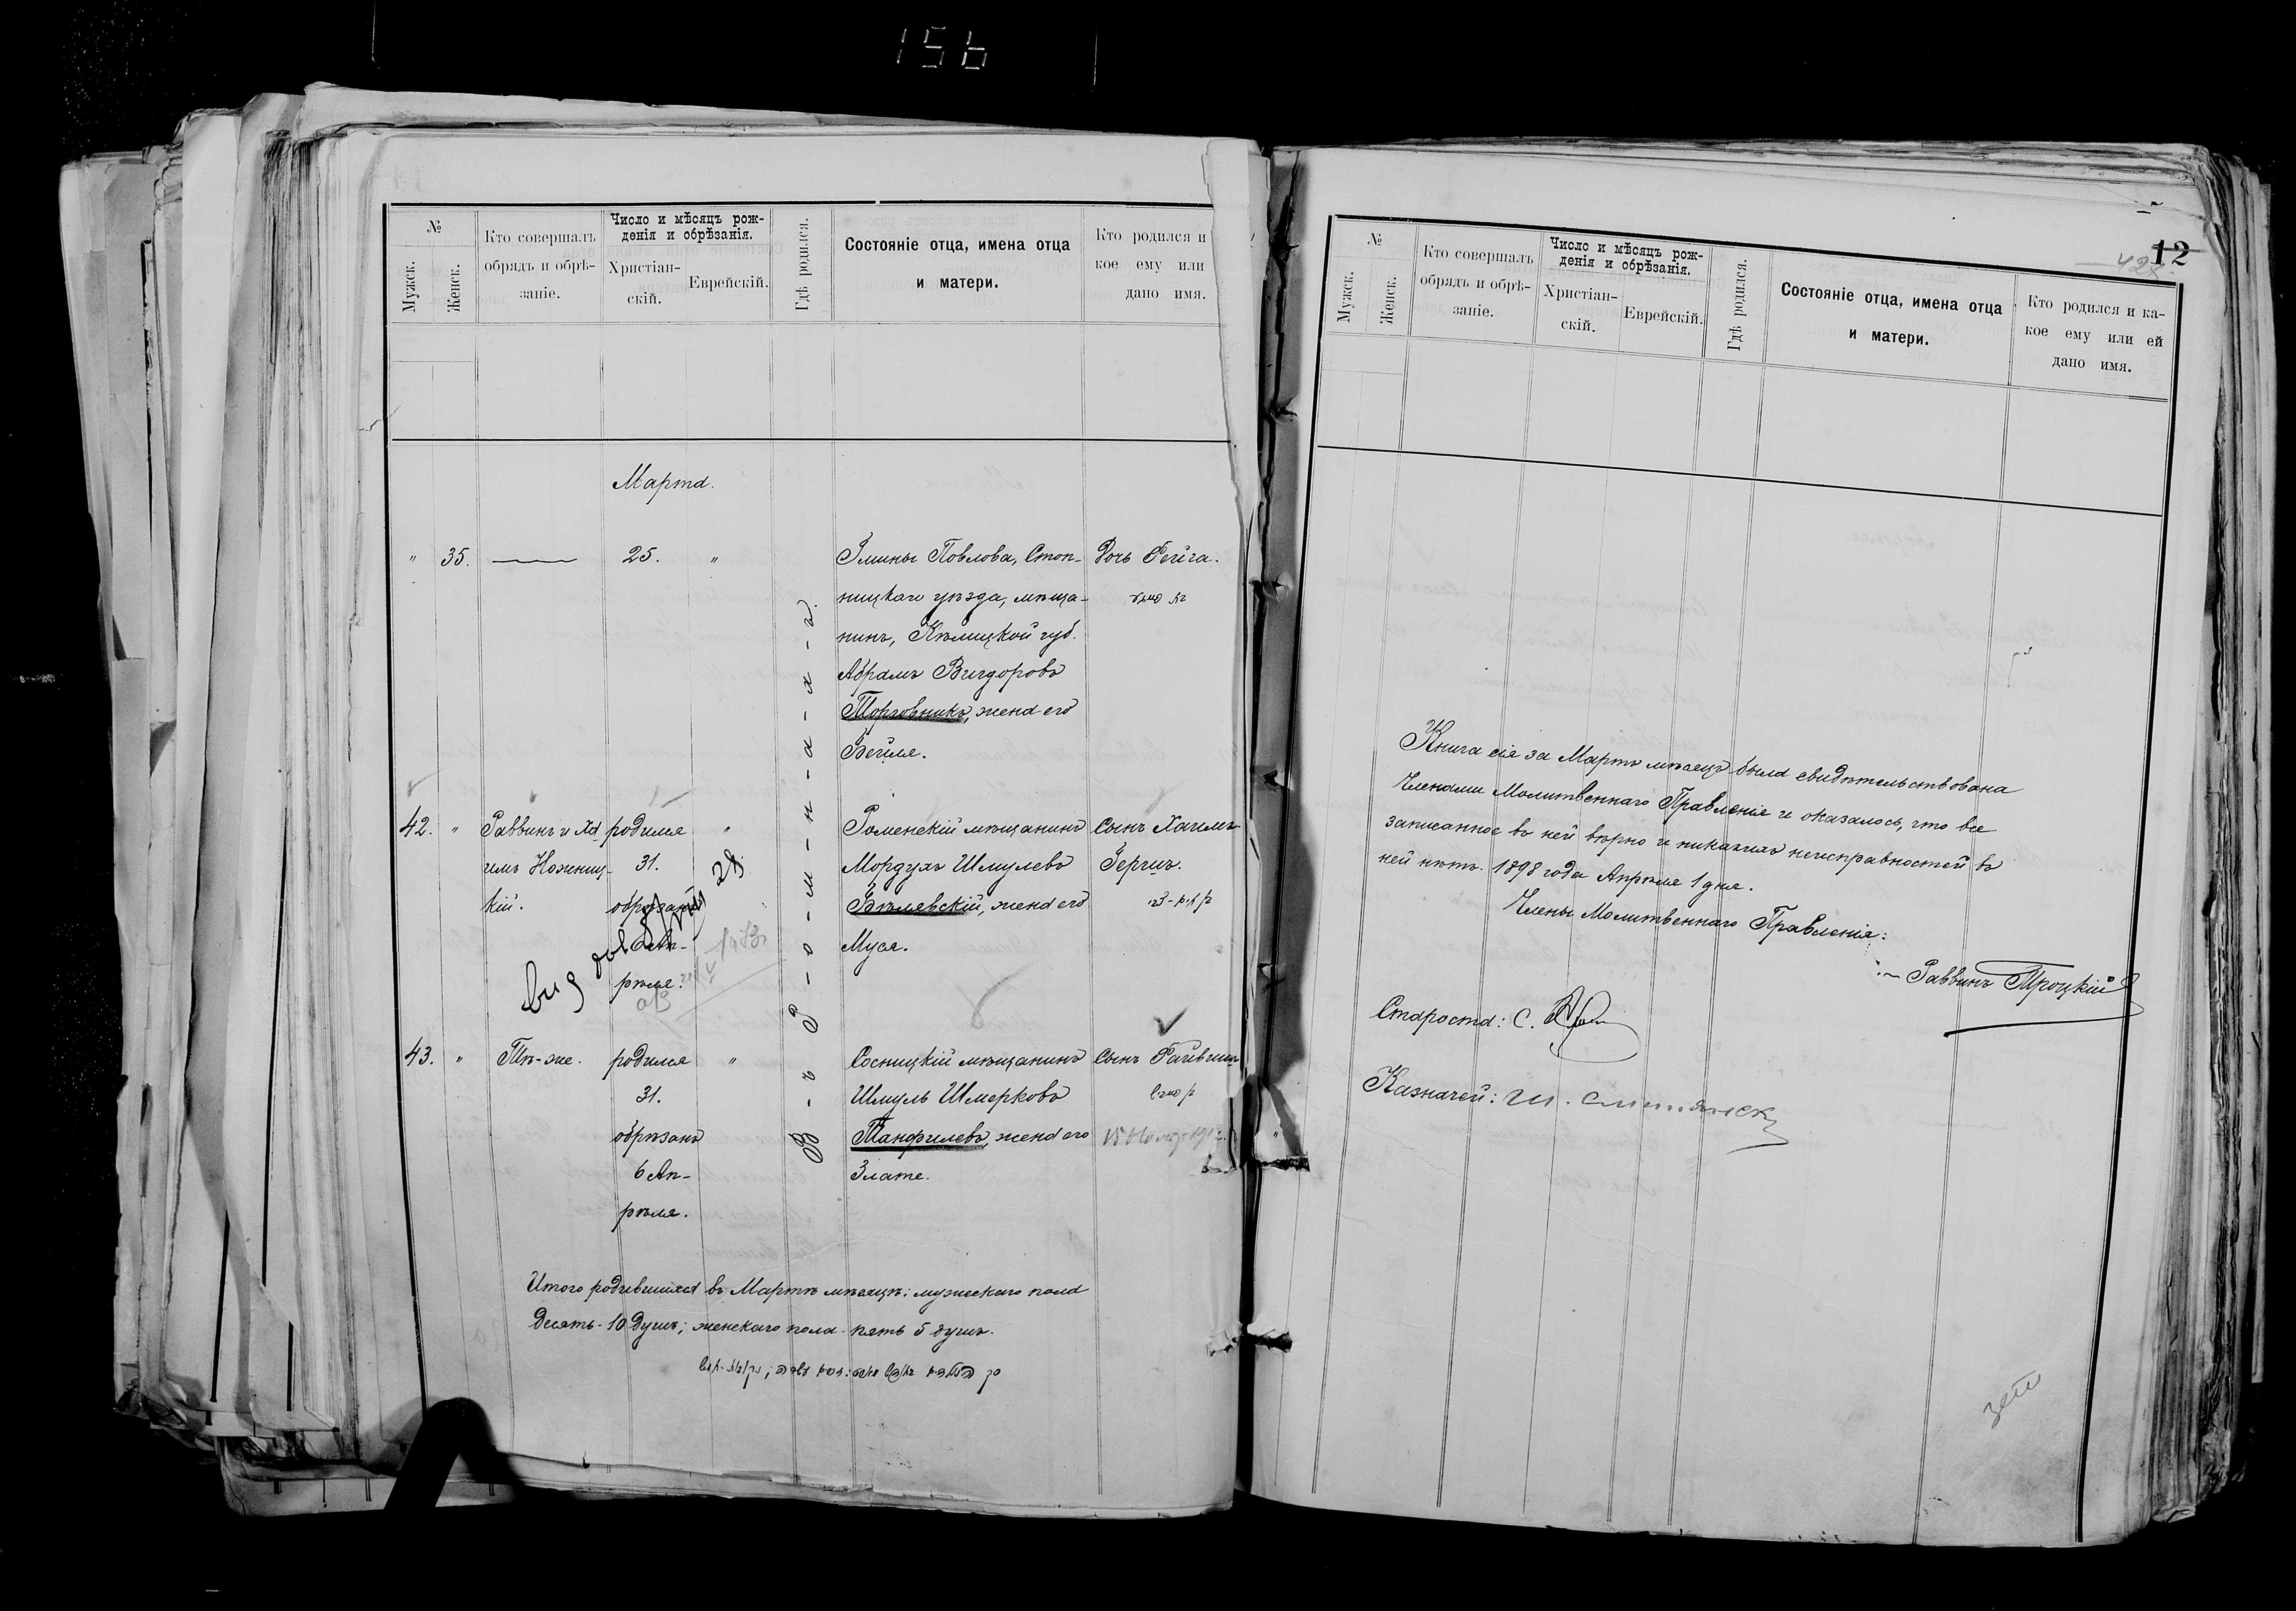 156
№
Мужск.
Женск.
Кто совершалъ
обрядъ и обрѣ-
заніе.
Число и мѣсяцъ рож-
денія и обрѣзанія.
Христіан-
скій.
Еврейскій.
Гдѣ родился.
Состояніе отца, имена отца
и матери.
Кто родился и
кое ему или
дано имя.
Марта.
" 35. — 25. "
Павлова, Стоп-
ницкаго уѣзда, мѣща-
нинъ, Кѣлицкой губ.
Абрамъ Вигдоровъ
Торговникъ, жена его
Бейля.
Дочь Фейга.
Въ Ромнахъ.
42. "
Раввинъ и Ха
имъ Ножниц-
кій.
родился
31.
обрѣзанъ
6 Ап-
рѣля.
"
Роменскій мѣщанинъ
Мордухъ Шмулевъ
Бѣлявскій, жена его
Муся.
Сынъ Хаимъ-
Гершъ.
43. "
Тѣ-же.
родился
31.
обрѣзанъ
6 Ап-
рѣля.
"
Сосницкій мѣщанинъ
Шмуль Шмерковъ
Панфилевъ, жена его
Злата.
Сынъ Файвишъ
Итого родившихся въ Мартѣ мѣсяцѣ: мужескаго пола
Десять-10 душъ; женскаго пола - пять 5 душъ.
12
№
Мужск.
Женск.
Кто совершалъ
обрядъ и обрѣ-
заніе.
Число и мѣсяцъ рож-
денія и обрѣзанія.
Христіан-
скій.
Еврейскій.
Гдѣ родился.
Состояніе отца, имена отца
и матери.
Кто родился и ка-
кое ему или ей
дано имя.
Книга сія за Мартъ мѣсяцъ была свидѣтельствована
Членами Молитвеннаго Правленія и оказалось, что все
записанное въ ней вѣрно и никакихъ неисправностей въ
ней нѣтъ. 1898 года Апрѣля 1 дня.
Члены Молитвеннаго Правленія:
Раввинъ Троцкій
Староста: С.
Казначей: Ш.